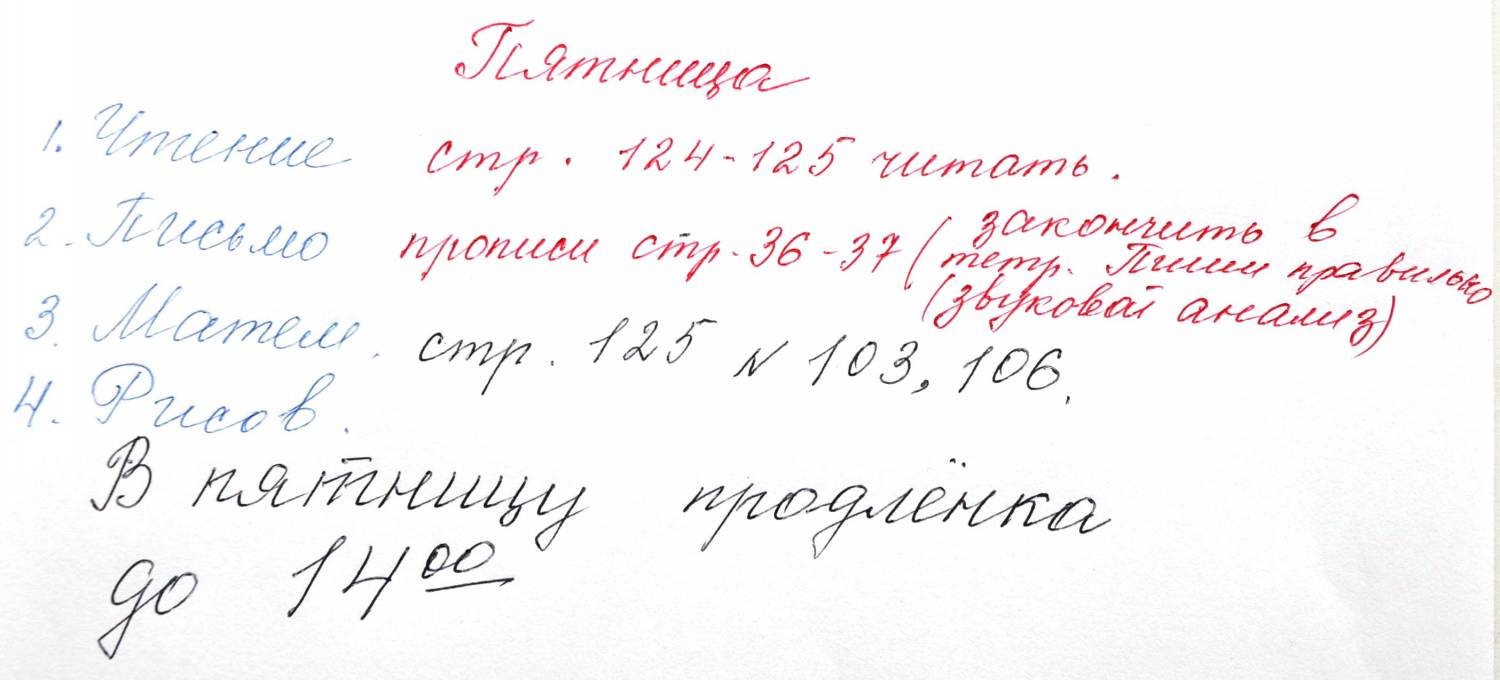 Пятница
1. Чтение стр. 124-125 читать.
2. Письмо прописи стр. 36-37 ( закончить в
тетр. Пиши правильно
(звуковой анализ)
3. Матем. стр. 125 N 103, 106.
4. Рисов.
В пятницу продлёнка
до 14 00